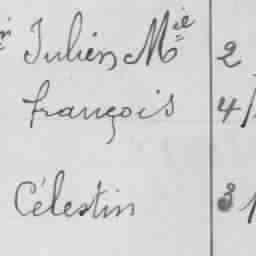 Julien Mie 2
François 4/
Célestin 3